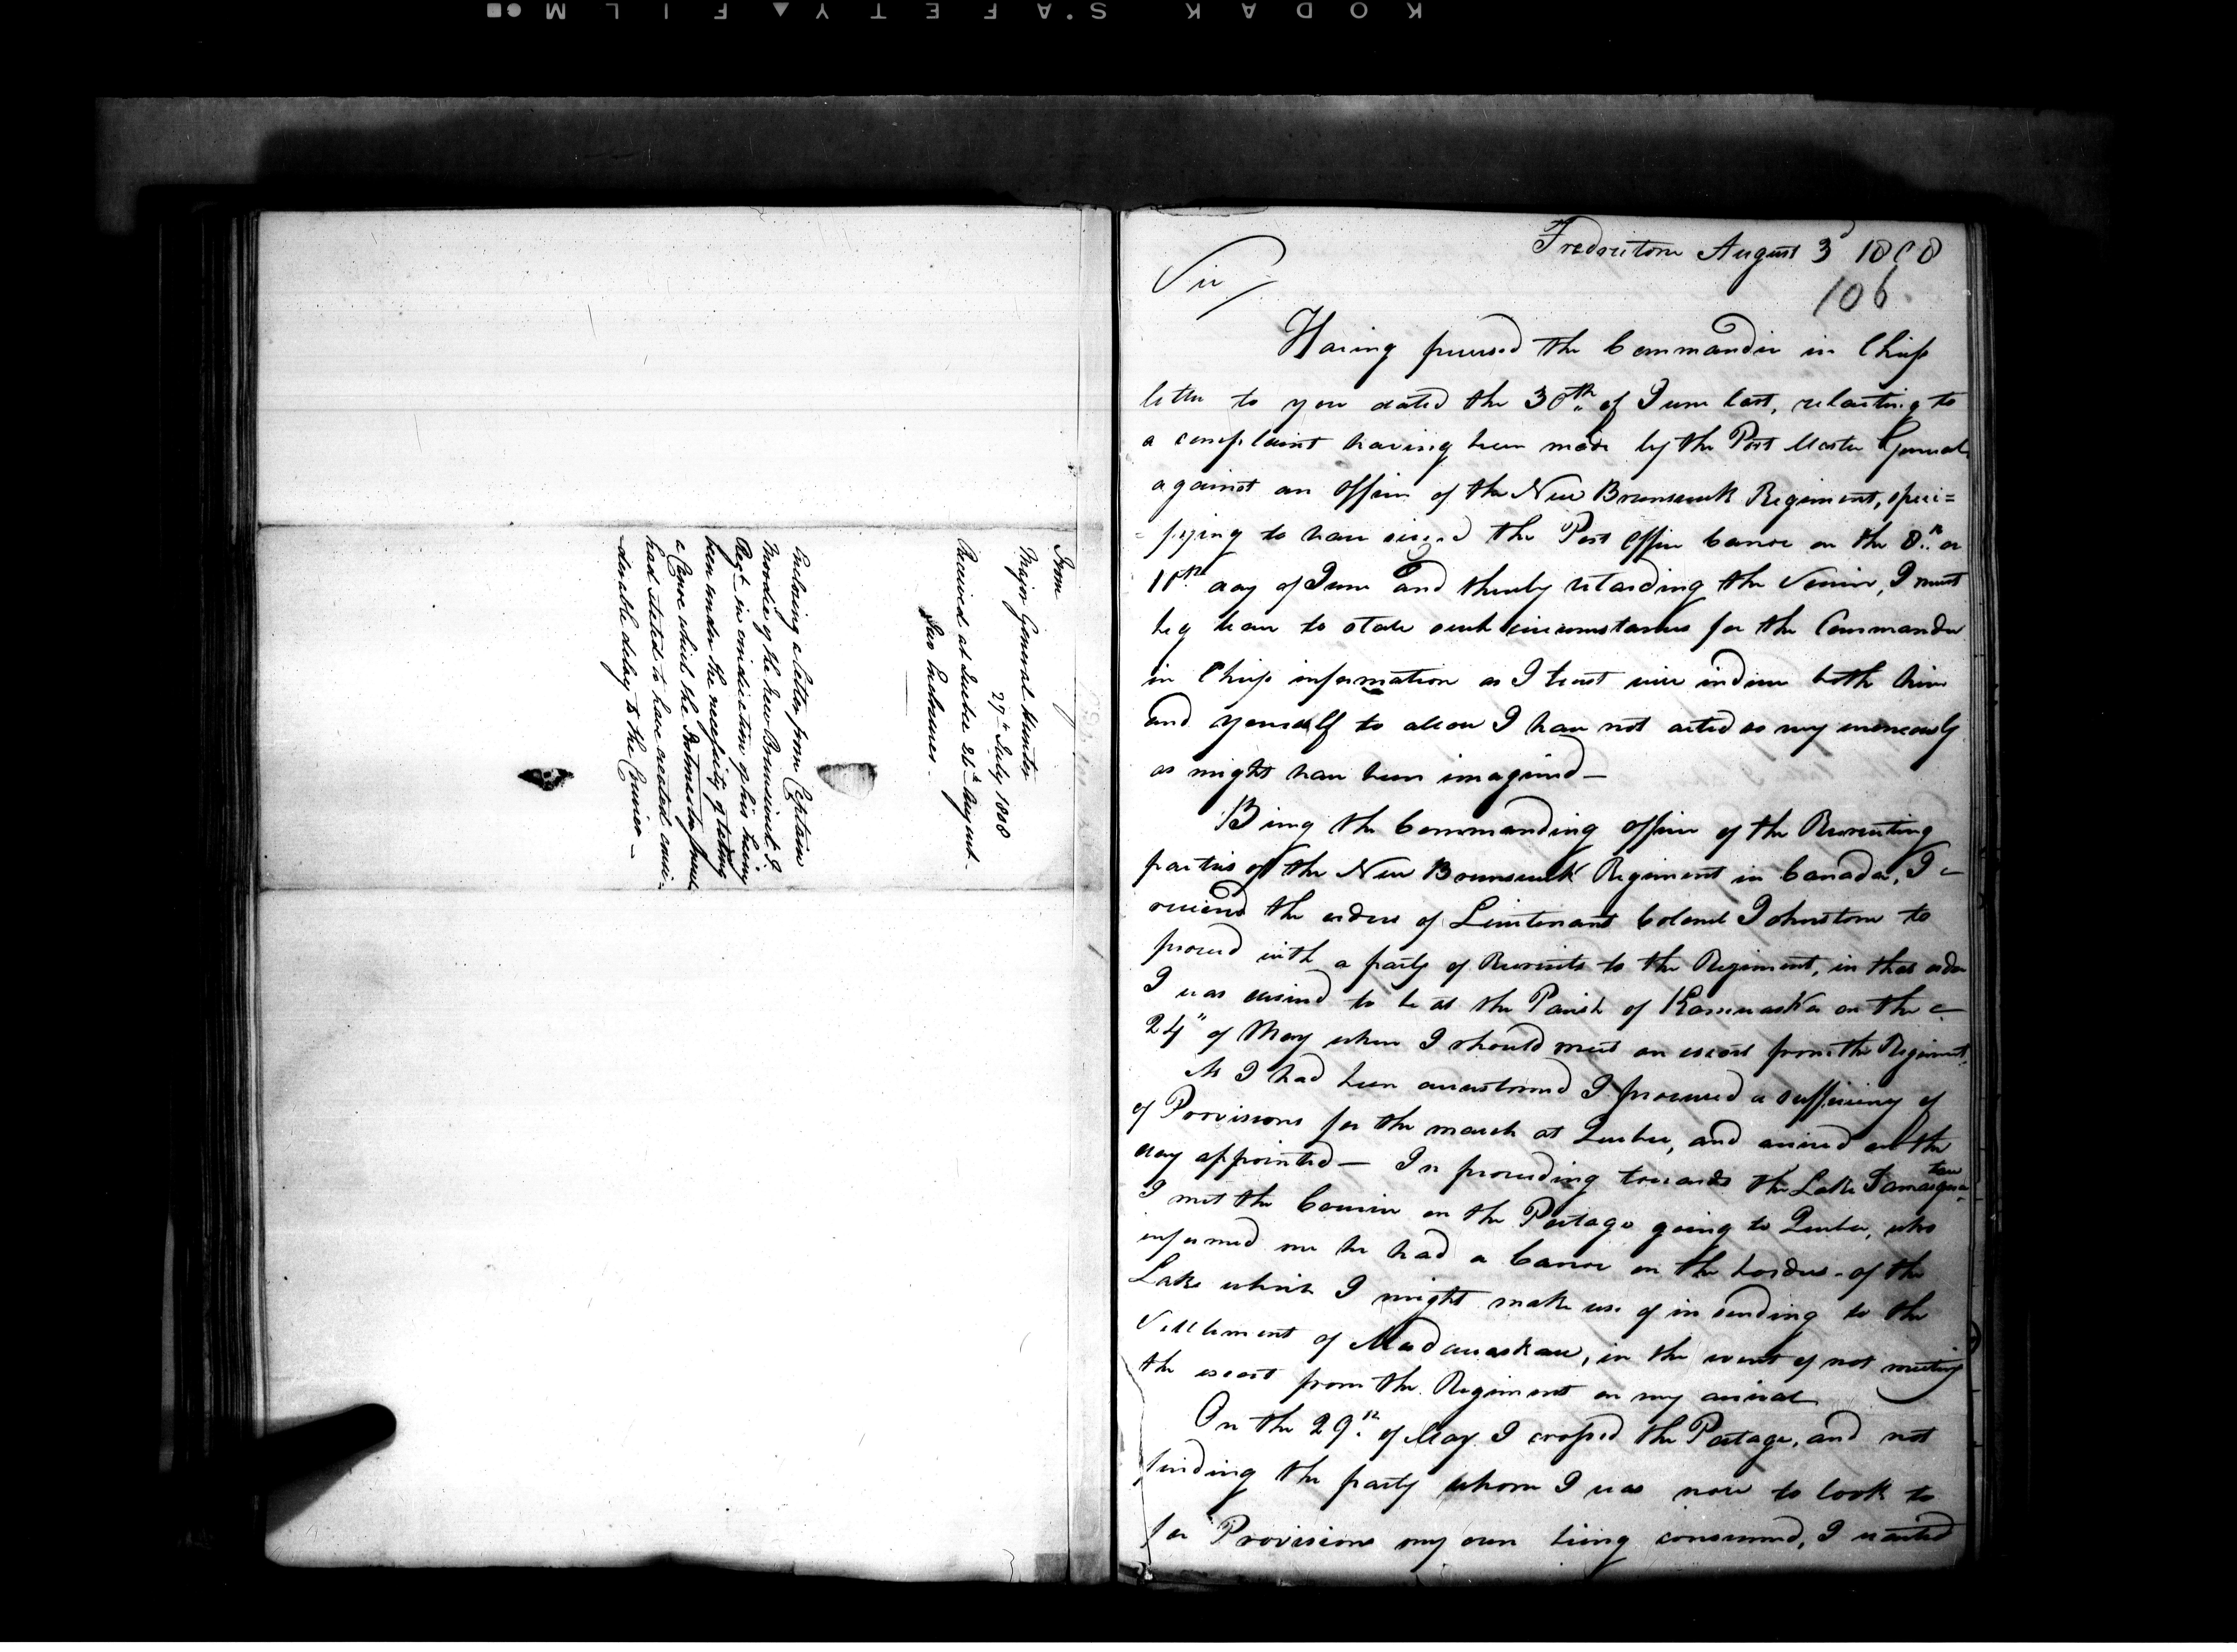 KODAK S'AFETY FILM
From
Major General Hunter
27th July 1808
Received at Quebec 24th August.
Two Enclosures.
Enclosing a letter from Captain
Moodie of the New Brunswick
Regt. in vindication of his having
been under the necessity of taking
a Canoe which the Postmaster
had stated to have created consi-
derable delay to the Courier
Fredricton August 3d 1808
106.
Sir/
Having perused the Commander in Chiefs
letter to you dated the 30th of June last, relaiting to
a complaint having been made by the Post Master General
against an officer of the New Brunswick Regiment, speci=
=fying to have seized the Post Office Canoe on the 8th or
10th day of June and thereby retarding the Service, I must
beg leave to state such circumstances for the Commander
in Chiefs information as I trust will induce both him
and yourself to allow I have not acted so very erroneously
as might have been imagined—
Being the Commanding officer of the Recruiting
parties of the New Brunswick Regiment in Canada, I
received the orders of Lieutenant Colonel Johnstone to
proceed with a party of Recruits to the Regiment, in that order
I was desired to be at the Parish of Kamuaska on the
24" of May when I should meet an escort from the Regiment.
As I had been accustomed I procured a sufficiency of
of Provisions for the march at Quebec, and arived on the
day appointed— In proceeding towards the Lake
I met the Courier on the Portage going to Quebec, who
informed me he had a Canoe on the borders of the
Lake which I might make use of in sending to the
Settlement of Madawaskau, in the event of not meeting
the escort from the Regiment on my arival
On the 29th of May I crossed the Portage, and not
finding the party whom I was now to look to
for Provisions my own being consumed, I waited